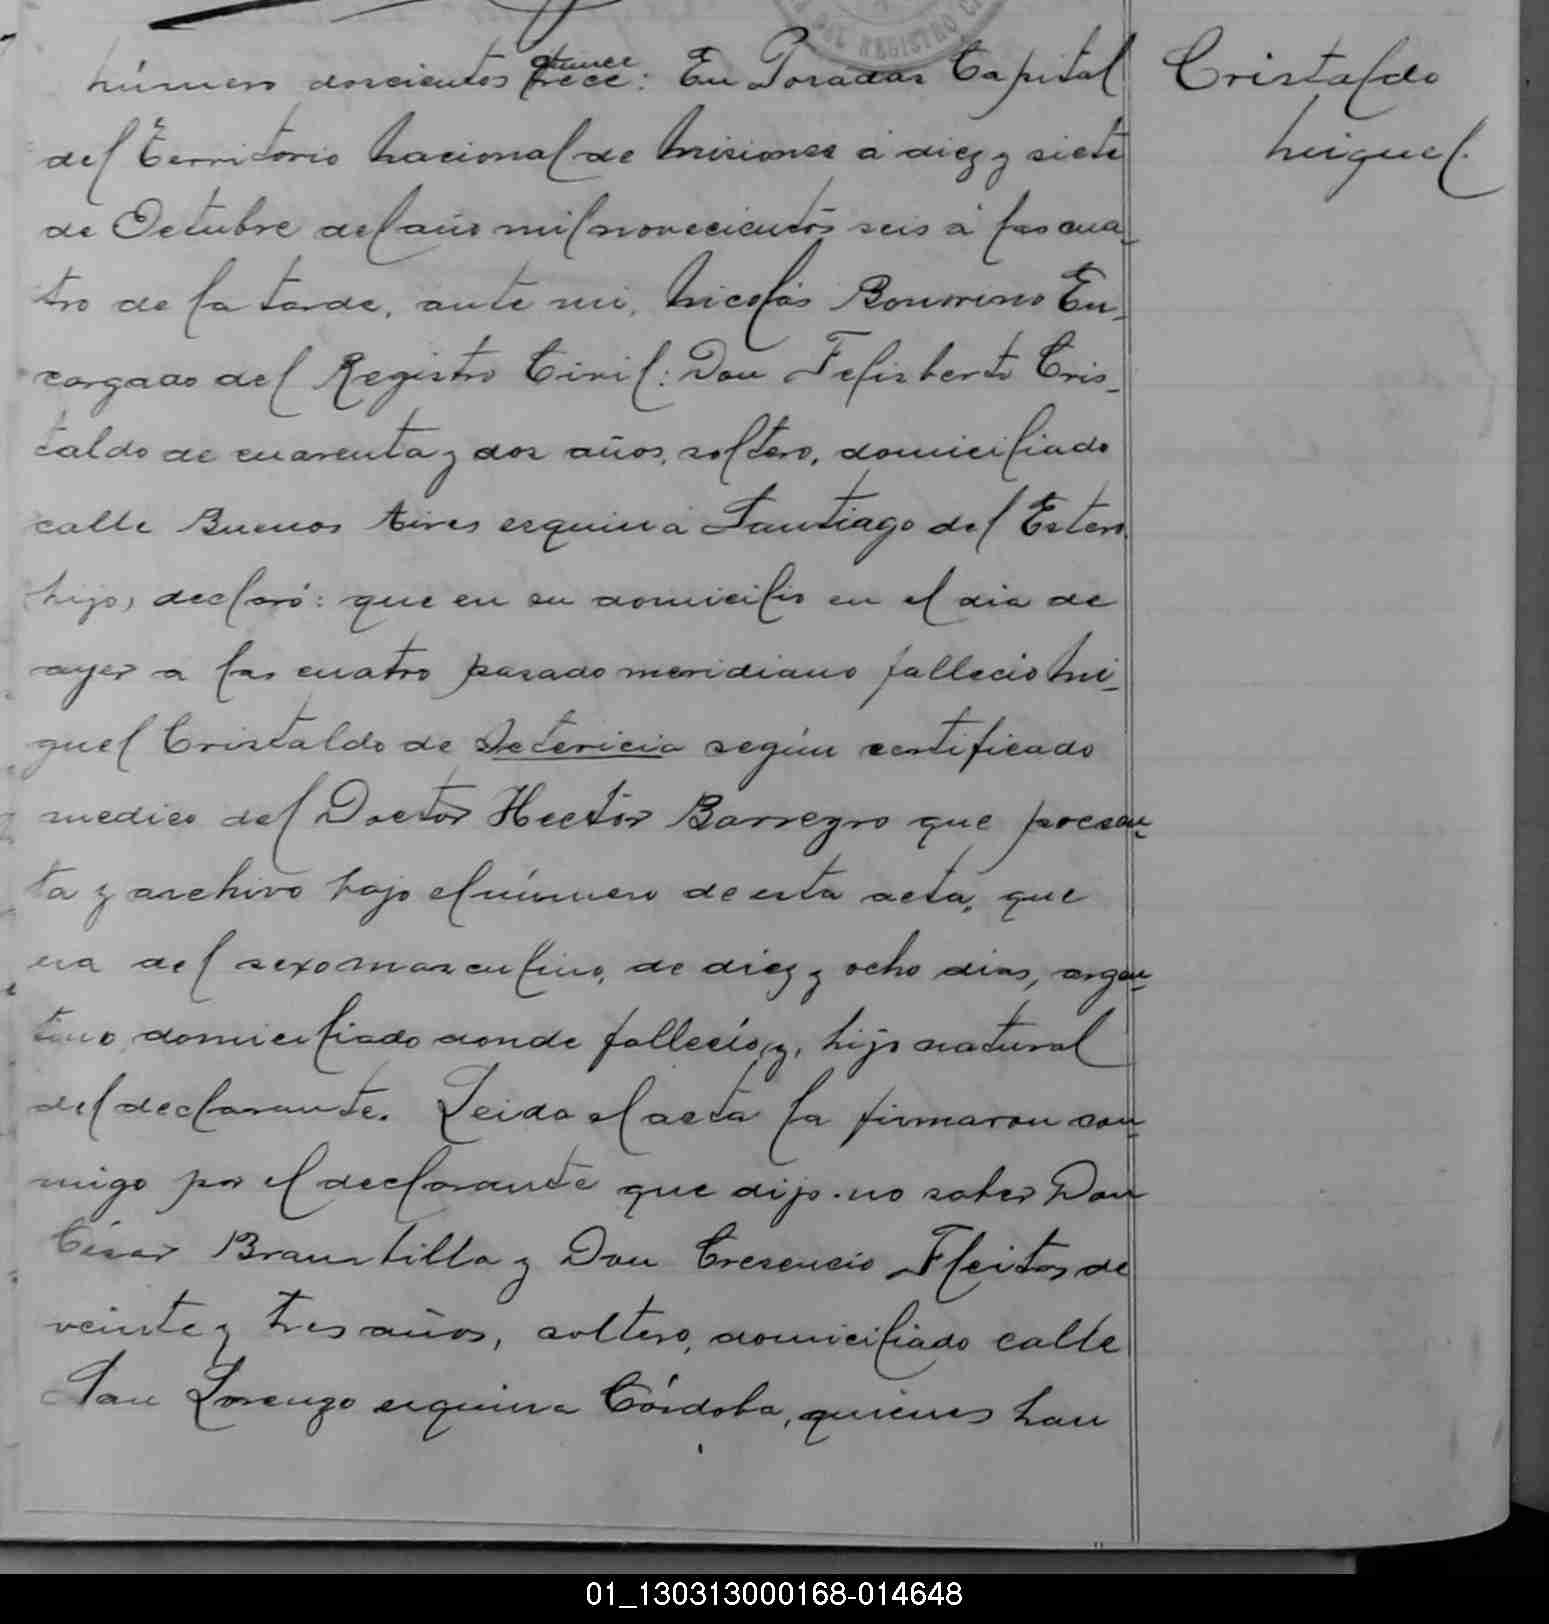 DEL REGISTRO CI
Número doscientos trece: En Posadas Capital
quince
del Territorio Nacional de Misiones á diez y siete
de Octubre del año mil novecientos seis á las cua-
tro de la tarde, ante mi, Nicolás Bonorino En-
cargado del Registro Civil: Don Felisberto Cris-
taldo de cuarenta y dos años, soltero, domiciliado
calle Buenos Aires esquina Santiago del Estero
hijo, declaró: que en su domicilio en el dia de
ayer a las cuatro pasado meridiano falleció Mi-
guel Cristaldo de Ictericia según certificado
medico del Doctor Hector Barreyro que presen-
ta y archivo bajo el número de esta acta, que
era del sexo masculino, de diez y ocho dias, argen-
tino domiciliado donde falleció, y, hijo natural
del declarante. Leida el acta la firmaron con-
migo por el declarante que dijo no saber Don
César y Don Cresencio Fleitas de
veinte y tres años, soltero, domiciliado calle
San Lorenzo esquina Córdoba, quienes han
Cristaldo
Miguel.
01_130313000168-014648